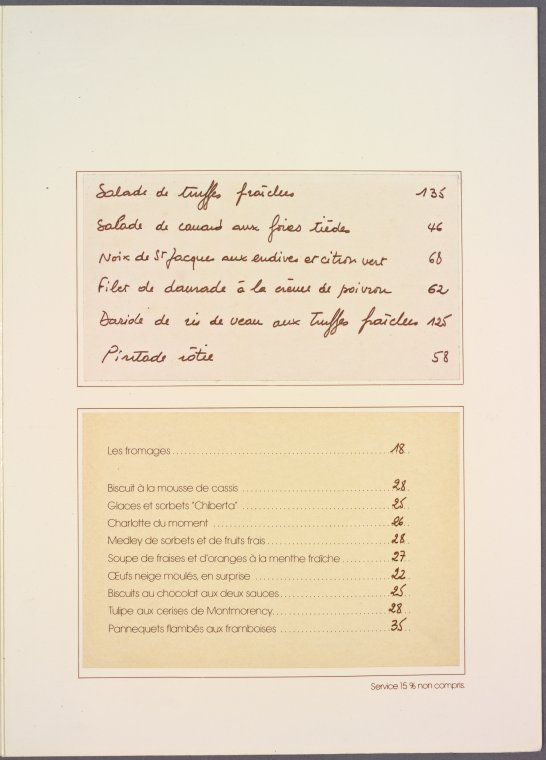 Salade de truffes fraîches 135
Salade de canard aux foies tièdes 46
Noix de St Jacques aux endives et citron vert 68
Filet de daurade à la crème de poivron 62
de ris de veau aux truffes fraîches 125
Pintade rôtie 58
Les fromages 18
Biscuit à la mousse de cassis 28
Glaces et sorbets "Chiberta" 25
Charlotte du moment 26
Medley de sorbets et de fruits frais 28
Soupe de fraises et d'oranges à la menthe fraîche 27
Œufs neige moulés, en surprise 22
Biscuits au chocolat aux deux sauces 25
Tulipe aux cerises de Montmorency 28
Pannequets flambés aux framboises 35
Service 15 % non compris.